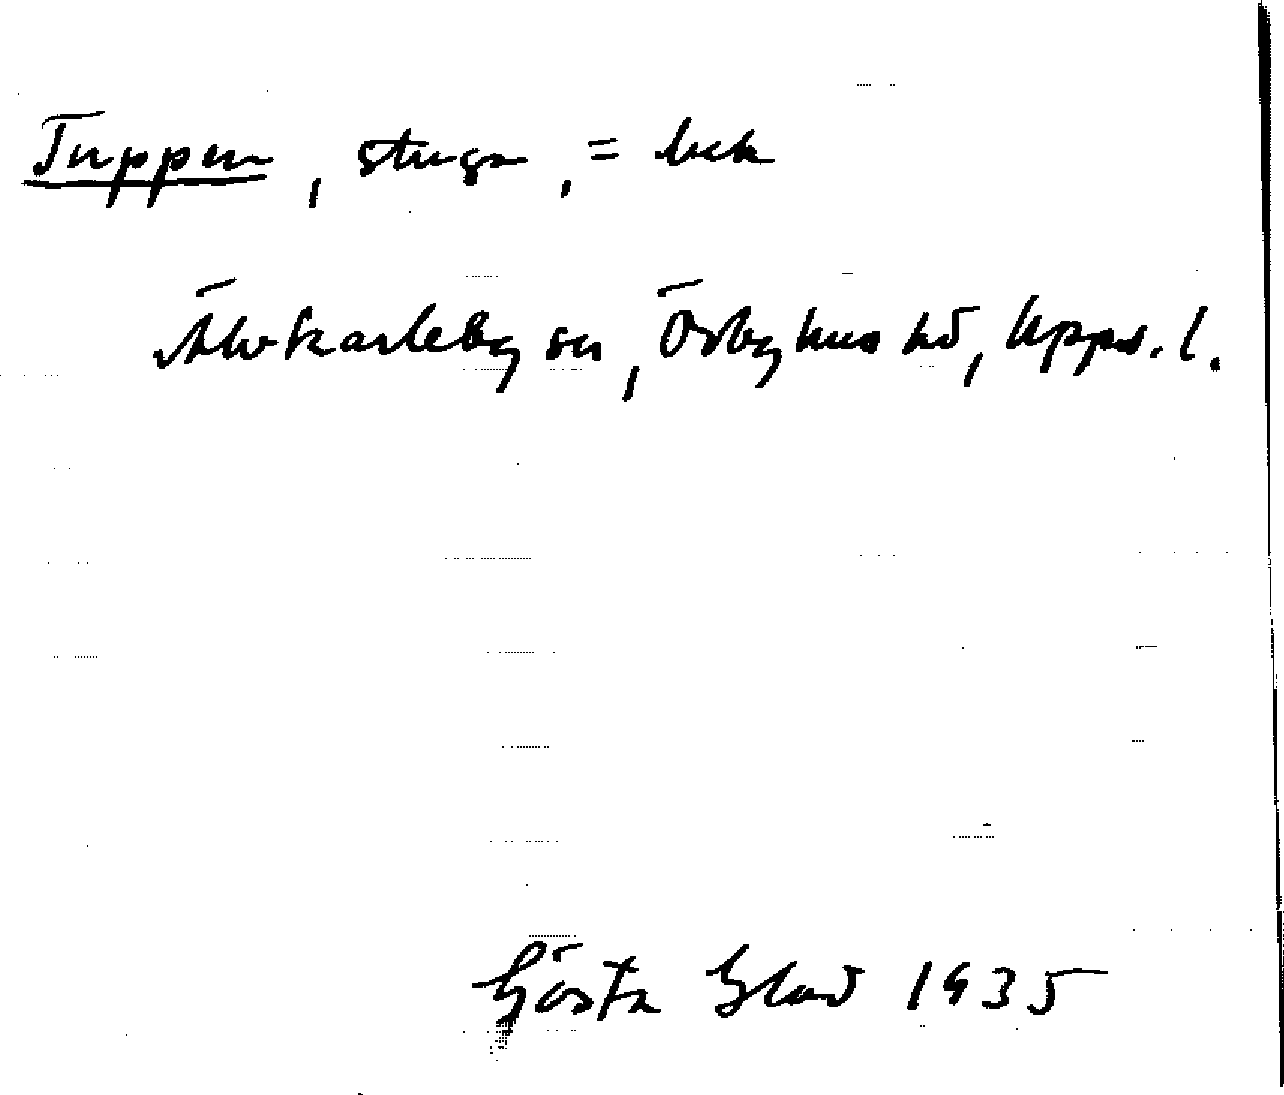 Tuppen, stuga, = bek
Älvkarleby sn, Örbyhus hd, Upps. l.
Gösta Glad 1935